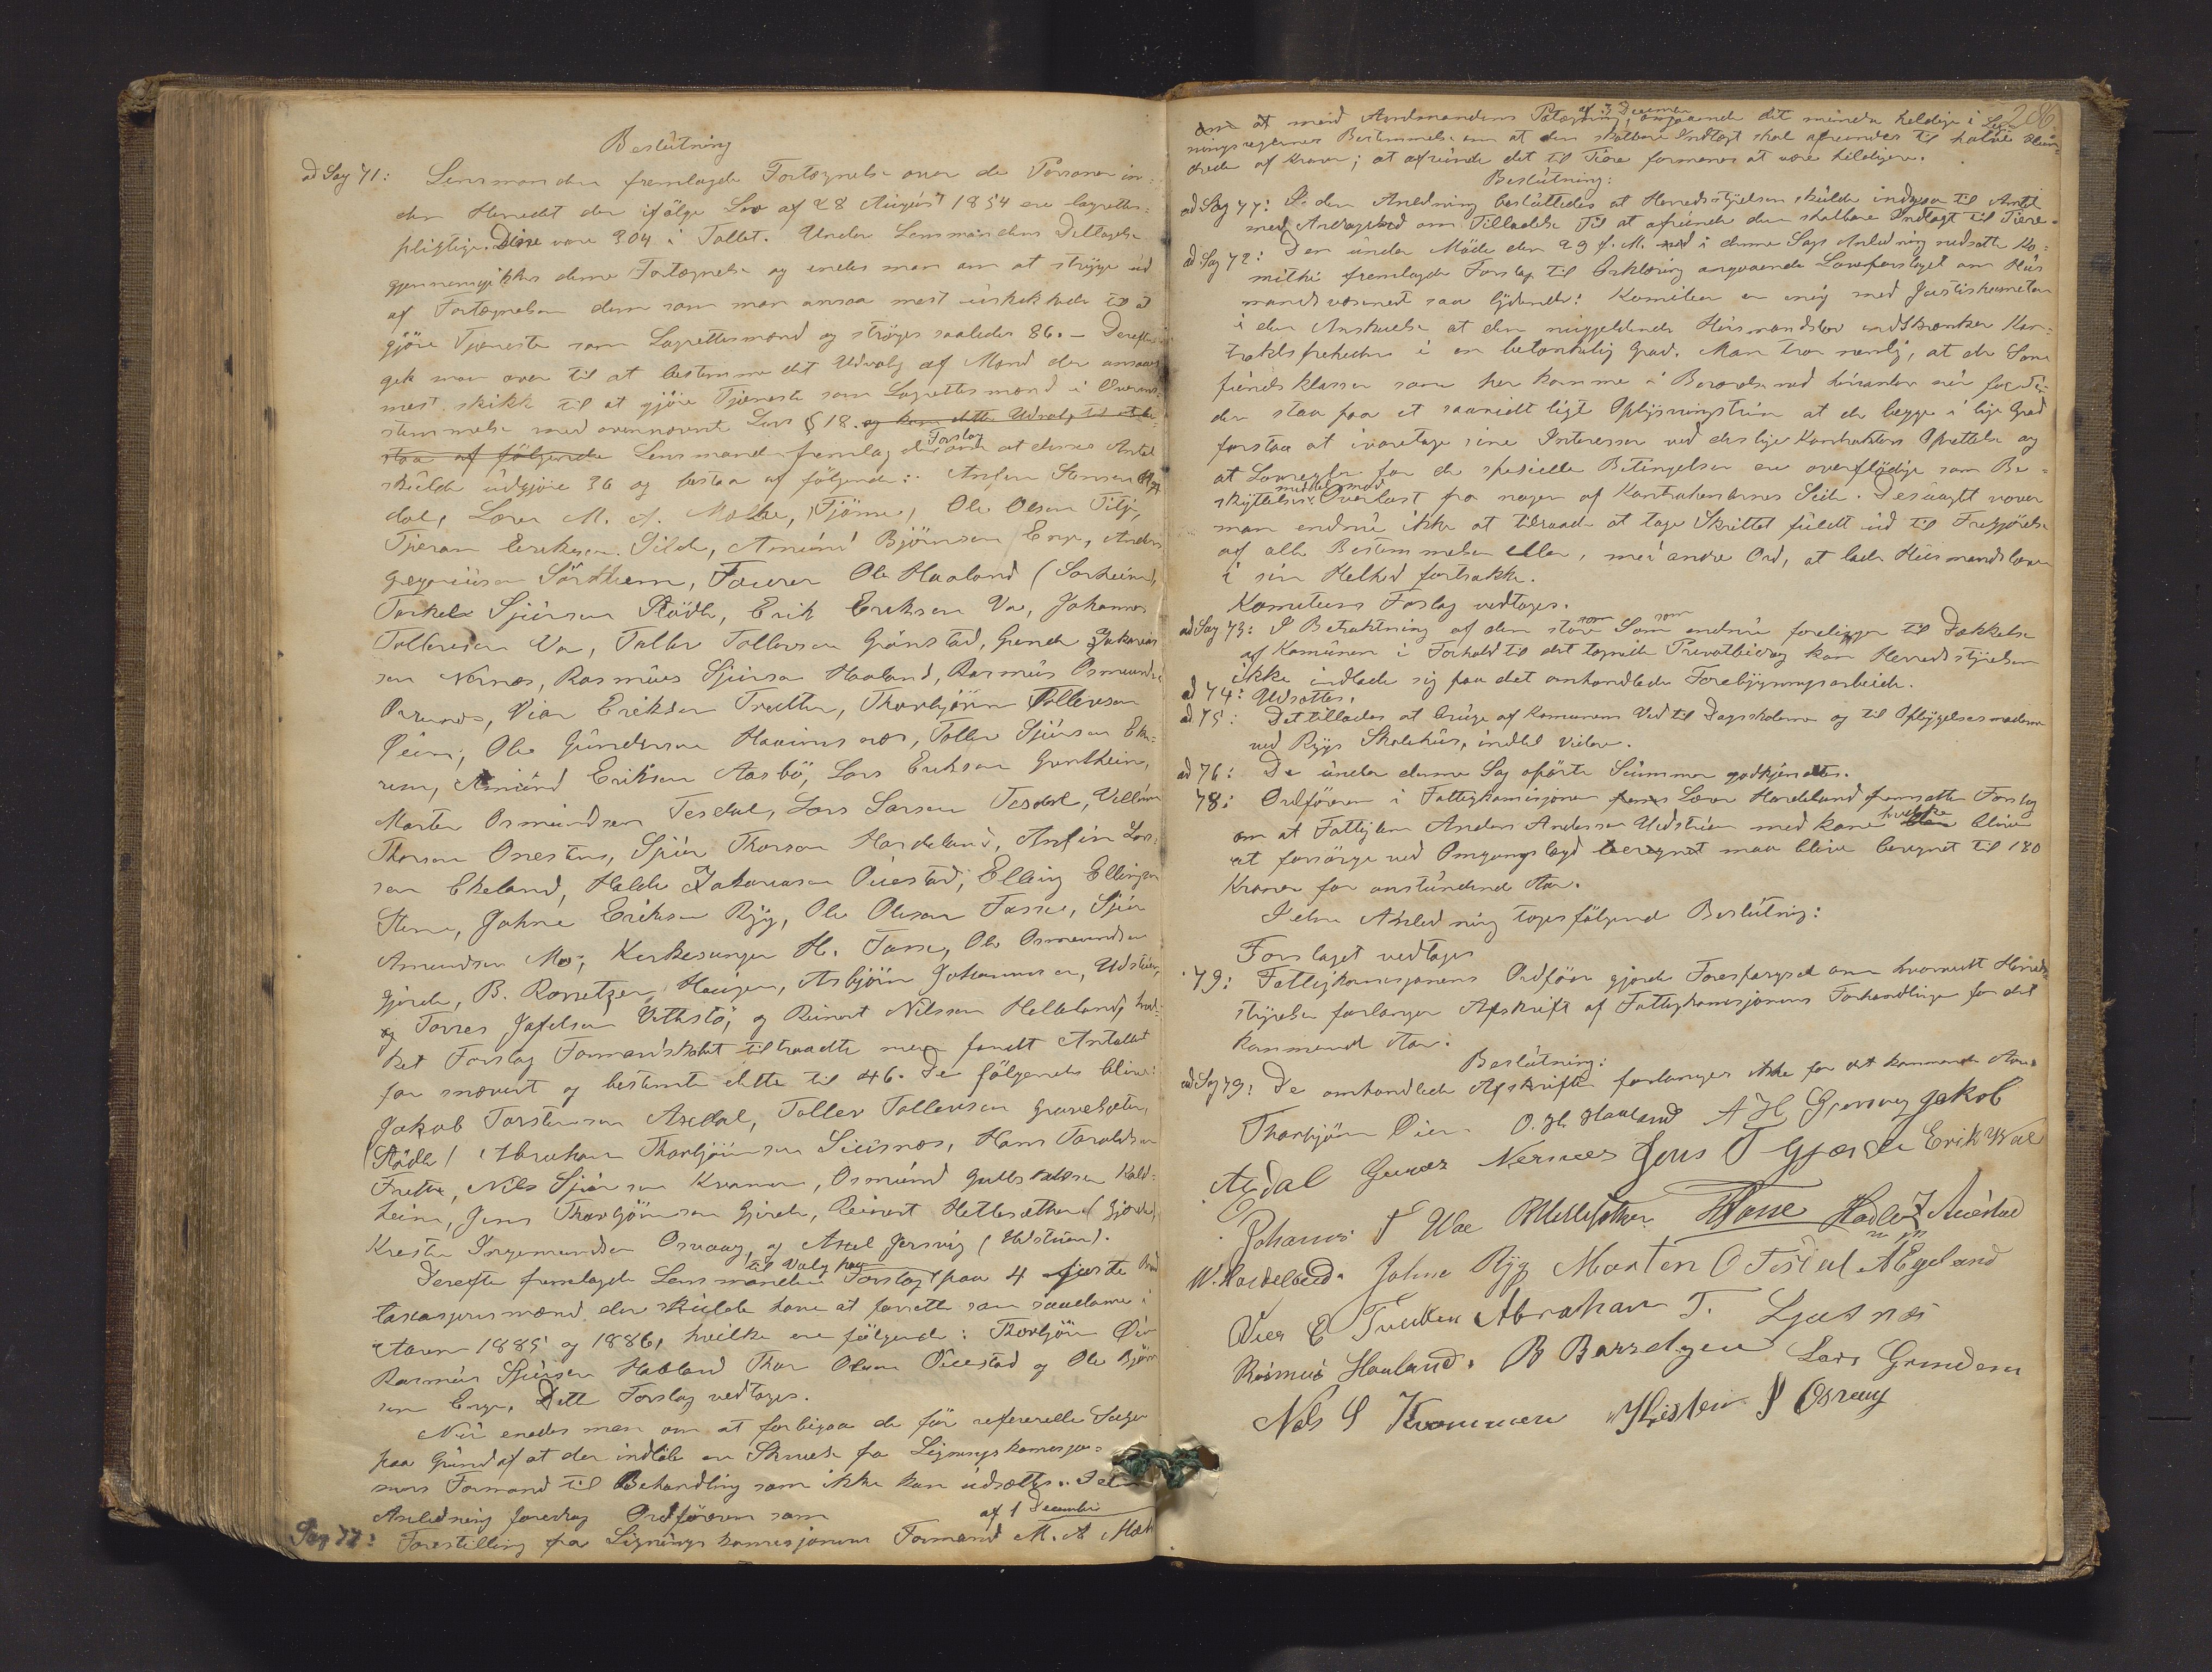 Beslutning
ad Sag 71: Lensmanden fremlagde Fortegnelse over de Personer in-
den Herredet der ifölge Lov af 28 August 1854 ere lagrettes-
pligtige. Disse vare 304 i Tallet. Under Lensmandens Deltagelse
gjennemgikkes denne Fortegnelse og enedes man om at stryge ud
af Fortegnelsen dem som man ansaa mest uskikkede til at
gjöre Tjeneste som Lagrettesmænd og ströges saaledes 86. – Derefter
gik man over til at bestemme det Udvalg af Mænd der ansaaes
mest skikket til at gjöre Tjeneste som Lagrettesmænd i Overens-
stemmelse med ovennævnt Lovs § 18. og kom dette Udvalg til at be-
staa af fölgende Lensmanden fremlagde Forslag om at dennes Antal
skulde udgjöre 36 og bestaa af fölgende: Anfin Stensen
dal, Lærer M. A. Molke, Tjörne, Ole Olsen Tilje,
Tjeran Eriksen Silde, Amund Björnsen Enge, Anders
Gregoriusen Sörtheim, Taurer Ole Haaland (Sorheim),
Torkel Sjursen Stödle, Erik Eriksen Va, Johannes
Tollevsen Va, Tollev Tollevsen Grönstad, Gunder Zakarias-
sen Nernæs, Rasmus Sjursen Haaland, Rasmus Osmundsen
Osnes, Vier Eriksen Tvedten, Thorbjörn Tollevsen
Öien, Ole Gundersen Haavimsnes, Tollev Sjursen Ekn-
rem, Amund Eriksen Aasbö, Lars Eriksen Grindheim,
Morten Osmundsen Tesdal, Lars Larsen Tesdal, Villum
Thorsen Onestens, Sjur Thorsen Hardeland, Anfin Lar-
sen Ekeland, Halde Zakariasen Öiestad, Elling Ellingsen
Stene, Johne Eriksen Ryg, Ole Olsen Fosse, Sjur
Amundsen Mo, Kirkesanger H. Fosse, Ole Osmundsen
Gjerde, B. Rosnetzen Haugen, Asbjörn Johannessen, Udstuen,
og Torres Jofelsen Vethstö, og Reinert Nilssen Helleland, hvil-
ket Forslag Formandskabet tiltraadte men fandt Antallet
for snævert og bestemte dette til 46. De fölgende bliver:
Jakob Torstensen Axdal, Tollev Tollevsen Gravelsæter,
(Stödle) Abraham Thorbjörnsen Sjursnæs, Hans Taraldsen
Frette, Nils Sjursen Kvammen, Osmund Guttormsen Kald-
heim, Jens Thorbjörnsen Gjerde, Reinert Hetlesæther (Gjerde),
Kristen Ingemundsen Osvaag, og Axel Jersvig (Udstuen).
Derefter fremlagde Lensmanden til Valg paa Forslag paa 4 faste Brand-
taxasjonsmænd der skulde have at forrette som saadanne i
Aaren 1885 og 1886, hvilke ere fölgende: Thorbjörn Öien
Rasmus Sjursen Haaland Thor Olsen Öiestad og Ole Björn-
sen Enge. Dette Forslag vedtoges.
Nu enedes man om at forbigaa de för refererede Sager
paa Grund af at der indlöb en Skrivelse fra Ligningskomisjo-
nens Formand til Behandling som ikke kan udsættes. I den
Anledning foredrog Ordföreren som
Sag 77: Forestilling fra Ligningskomisjonens Formand M. A. Molk af 1 December
286
om at med Amdmandens Paategning af 3 Decemer angaaende det mindre heldige i Lig-
ningsreglernes Bestemmelse om at den skatbare Indtægt skal afrundes til halve Hun-
drede af Kroner; at afrunde det til Tiere formener at være heldigere.
Beslutning:
ad Sag 77: I den Anledning besluttedes at Herredsstyrelsen skulde indgaa til Amtet
med Andragende om Tilladelse til at afrunde den skatbare Indtægt til Tiere.
ad Sag 72: Den under Möde den 29 f. M. ned i denne Sags Anledning nedsatte Ko-
mitte fremlagde Forslag til Erklæring angaaende Lovforslaget om Hus
mandsvæsenet saa lydende: Komiteen er enig med Justiskomiteen
i den Anskuelse at den nugjeldende Husmandslov indskrænker Kon-
traktsfriheden i en betænkelig Grad. Man tror nemlig, at de Sam
fundsklasser som her komme i Berörelse med hinanden nu for Ti-
den staa paa et saavidt ligt Oplysningstrin at de begge i lige Grad
forstaa at ivaretage sine Interesser ved deslige Kontrakters Oprettelse og
at Lovregler for de spesielle Betingelser ere overflödige som Be-
skyttelsesmiddel mod Overlast fra nogen af Kontrahenternes Side. Desuagtet vover
man endnu ikke at tilraade at tage Skridtet fuldt ud til Fravgjörelse
af alle Bestemmelser eller, med andre Ord, at lade Husmandsloven
i sin Helhed fortsætte.
Komiteens Forslag vedtages.
ad Sag 73: I Betraktning af den store Sum som endnu foreligger til Dækkelse
af Komunen i Forhold til det tegnede Privatbidrag kan Herredsstyrelsen
ikke indlade sig paa det omhandlede Forebygningsarbeide.
ad 74: Udsættes.
ad 75: Det tillades at bruge af Komunens Ved til Dagskolerne og til Opbyggelsesmöderne
ved Rygs Skolehus, indtil videre.
ad 76: De under denne Sag opförte Summer godkjendtes.
78: Ordföreren i Fattigkomisjonen Lærer Hardeland fremsatte Forslag
om at Fattiglem Anders Andersen Udstuen med Kone hvilke bliver
at forsörge ved Omgangslægd beregnet maa blive beregnet til 180
Kroner for anstundende Aar.
I den Anledning toges fölgende Beslutning:
Forslaget vedtages
79: Fattigkomisjonens Ordförer gjorde Forespörgsel om hvorvidt Herreds-
styrelsen forlanger Afskrift af Fattigkomisjonens Forhandlinger for det
kommende Aar.
Beslutning:
ad Sag 79: De omhandlede Afskrifter forlanges ikke for det kommende Aar.
Thorbjörn Öien O. H. Haaland A H Gjersvig Jakob
Axdal Gunder Nernæs Jens T Gjerde Erik Wae
Johanes T Wae R Hetlesæther H Fosse Hadle Z Öiestad
W. Hardeland. Johne Ryg Morten O Tesdal A Egeland
Vier E Tvedten Abraham T. Sjursnæs
Rasmus Haaland. B Lars Grindem
Nels S Kvammen Kristen I Osvaag